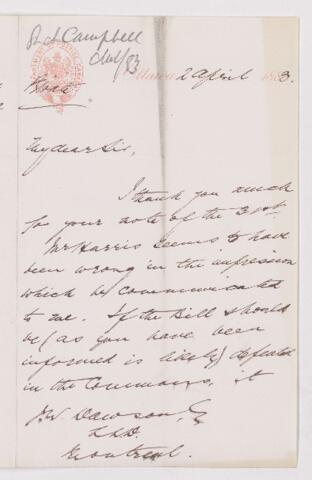 Campbell
Ottawa 2 April 1883.
My dear Sir,
I thank you much
for your note of the 31st.
Mr Harris seems to have
been wrong in the impression
which he communicated
to me. If the Bill should
be (as you have been
informed is likely) defeated
in the Commons, it
J.W. Dawson, Esq
LLD.
Montreal.